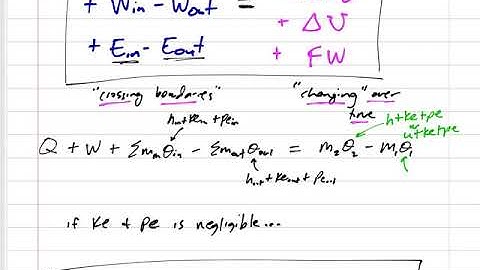 + Win - Wout =
+ ΔU
+ Ein - Eout
+ FW
"crossing boundaries"
"changing" over time
hin + kein + pein
h+ke+pe
or
u+ke+pe
Q + W + Σminθin - Σmoutθout = m2θ2 - m1θ1
hout + keout + peout
if ke + pe is negligible...